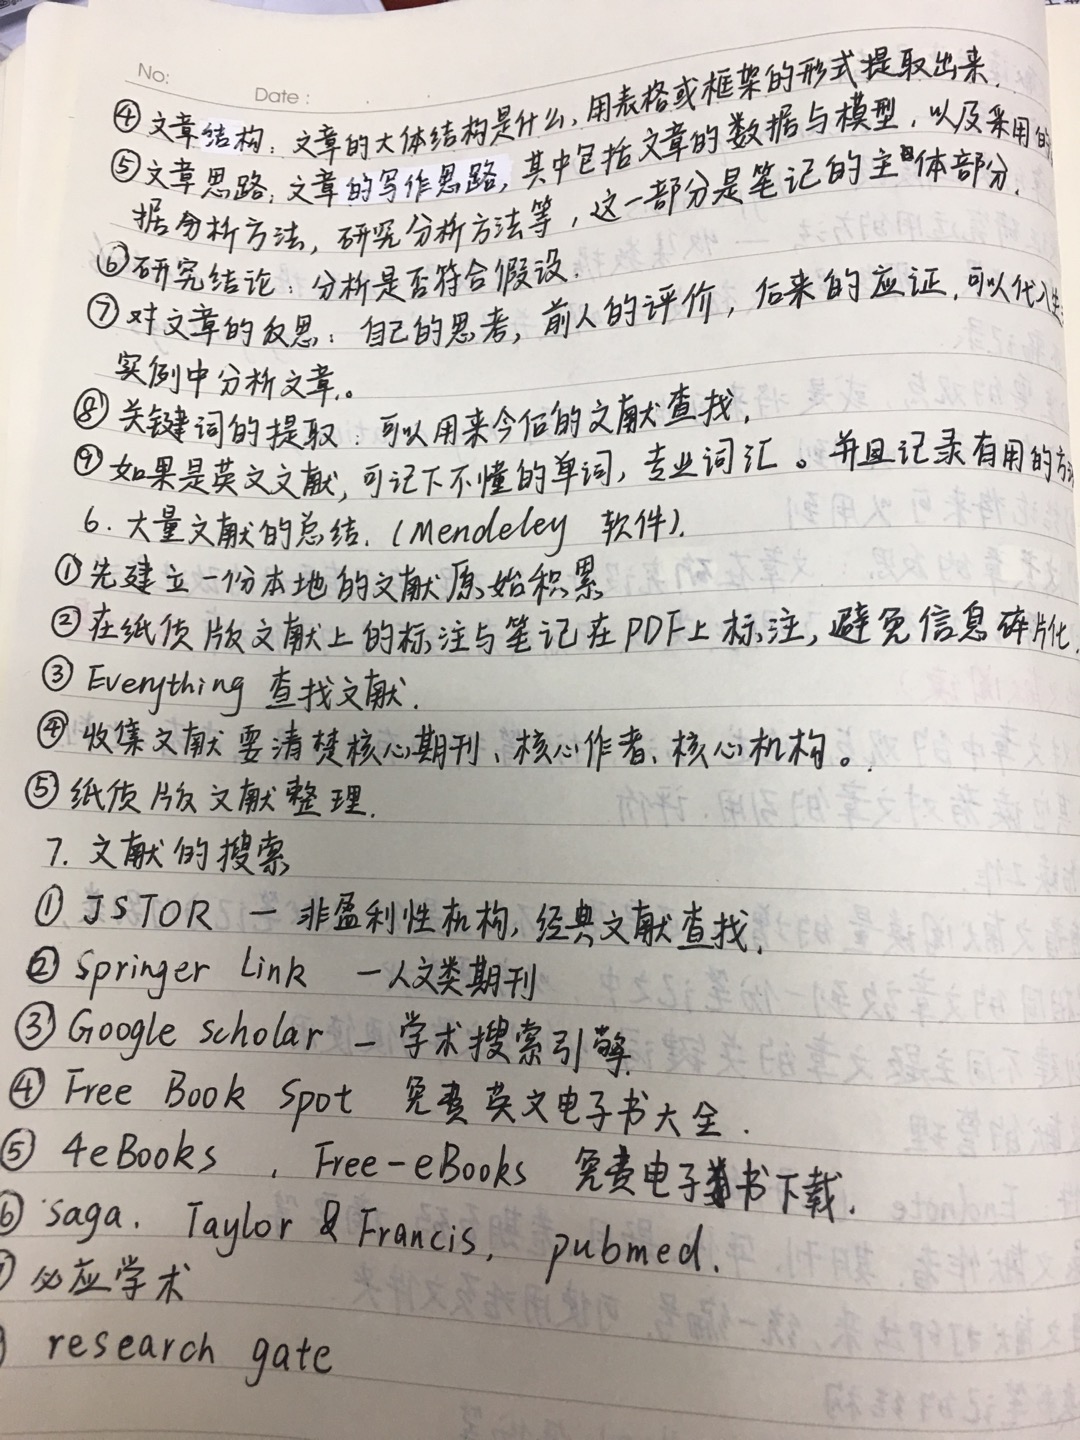 No:
Date:
④ 文章结构：文章的大体结构是什么，用表格或框架的形式提取出来．
⑤ 文章思路：文章的写作思路，其中包括文章的数据与模型，以及采用的
据分析方法，研究分析方法等，这一部分是笔记的主体部分．
⑥ 研究结论：分析是否符合假设．
⑦ 对文章的反思：自己的思考，前人的评价，后来的应证，可以代入
实例中分析文章．。
⑧ 关键词的提取：可以用来今后的文献查找．
⑨ 如果是英文文献，可记下不懂的单词，专业词汇。并且记录有用的方
6. 大量文献的总结．（Mendeley 软件）．
① 先建立一份本地的文献原始积累
② 在纸质版文献上的标注与笔记在PDF上标注，避免信息碎片化．
③ Everything 查找文献．
④ 收集文献要清楚核心期刊、核心作者、核心机构。
⑤ 纸质版文献整理．
7. 文献的搜索
① JSTOR — 非盈利性机构，经典文献查找．
② Springer Link —人文类期刊
③ Google scholar — 学术搜索引擎．
④ Free Book Spot 免费英文电子书大全．
⑤ 4eBooks ，Free-eBooks 免费电子书下载．
⑥ Saga． Taylor & Francis， pubmed．
必应学术
research gate